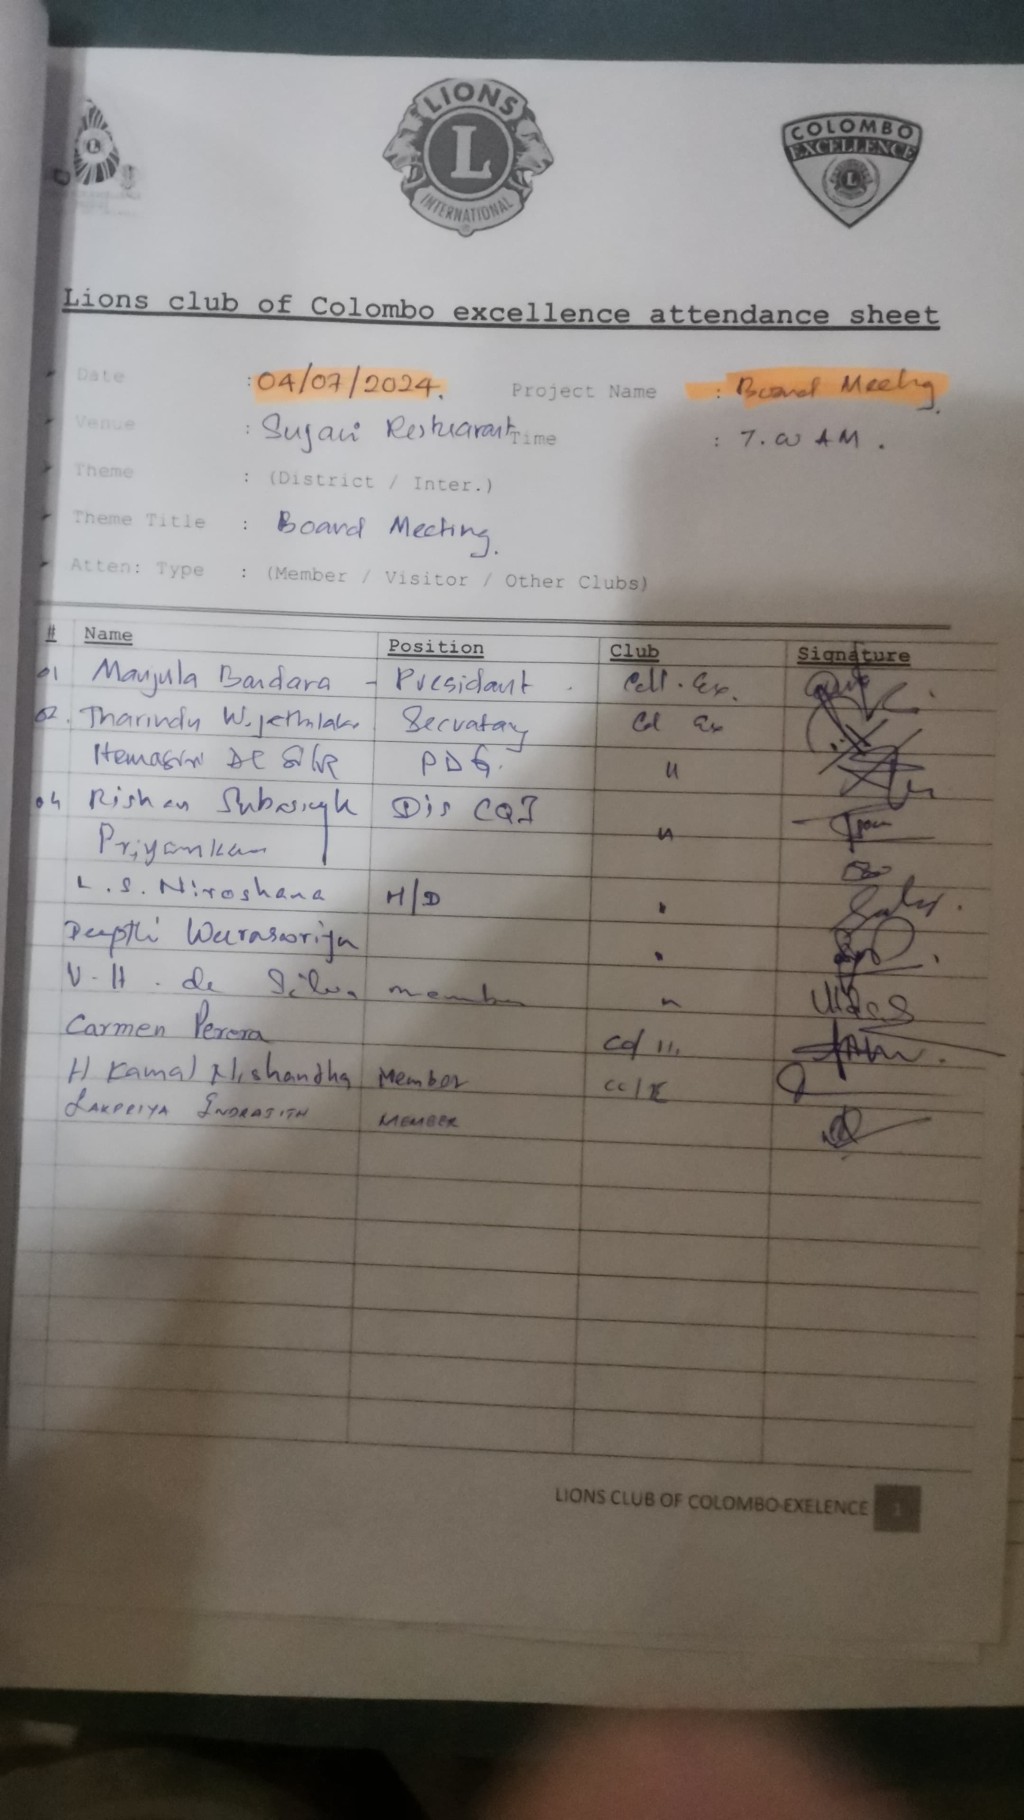 LIONS
L
INTERNATIONAL
COLOMBO
EXCELLENCE
L
Lions club of Colombo excellence attendance sheet
Date : 04/07/2024. Project Name : Board Meeting
Venue : Sujani Resturarant Time : 7.00 AM.
Theme : (District / Inter.)
Theme Title : Board Meeting.
Atten: Type : (Member / Visitor / Other Clubs)
# Name Position Club Signature
01 Manjula Bandara - Presidant. Coll. Ex.
02. Tharindu Secratary Col Ex
Hemasiri De PDG. "
04 Rishan Dis CQI "
Priyankan
L.S. Niroshana H/D "
Deepthi Weerasooriya "
V.H. de Silva member "
Carmen Perera
H Kamal Nishandha Member CC/E
LAKPRIYA INDRAJITH MEMBER
LIONS CLUB OF COLOMBO EXELENCE 1